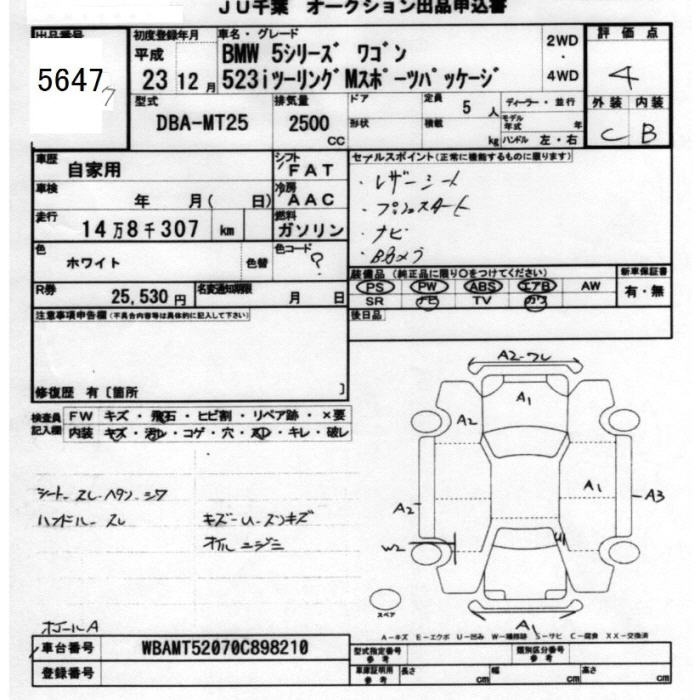 JU千葉 オークション出品申込書
出品番号
5647
7
初度登録年月
平成
23 12 月
車名・グレード
BMW 5シリーズ ワゴン
523iツーリングMスポーツパッケージ
2WD
・
4WD
評価点
4
外装 内装
C B
型式
DBA-MT25
排気量
2500
CC
ドア
形状
定員
5 人
積載
kg
ディーラー・並行
モデル年式 年
ハンドル 左・右
車歴
自家用
シフト
FAT
車検
年 月( 日)
冷房
AAC
走行
14万8千307 km
燃料
ガソリン
色
ホワイト
色替
色コード
?
R券
25,530 円
名変通知期限
月 日
セールスポイント(正常に機能するものに限ります)
・レザーシート
・プッシュスタート
・ナビ
・BBカメラ
装備品 (純正品に限り○をつけてください)
PS PW ABS エアB AW
SR ナビ TV カワ
新車保証書
有・無
後日品
注意事項申告欄(不具合内容等は具体的に記入して下さい)
修復歴 有〔箇所 〕
検査員記入欄
FW キズ・飛石・ヒビ割・リペア跡・×要
内装 キズ・汚レ・コゲ・穴・スレ・キレ・破レ
シート スレ ヘタリ シワ
ハンドル スレ
キズ-U-スソキズ
オイルニジミ
A2-ワレ
A1
A2
A1
A2
A3
W2
U1
A1
スペア
ホイールA
A－キズ E－エクボ U－凹み W－補修跡 S－サビ C－腐食 XX－交換済
車台番号
WBAMT52070C898210
登録番号
型式指定番号
参考
類別区分番号
参考
車庫証明用
参考
長さ cm
幅 cm
高さ cm